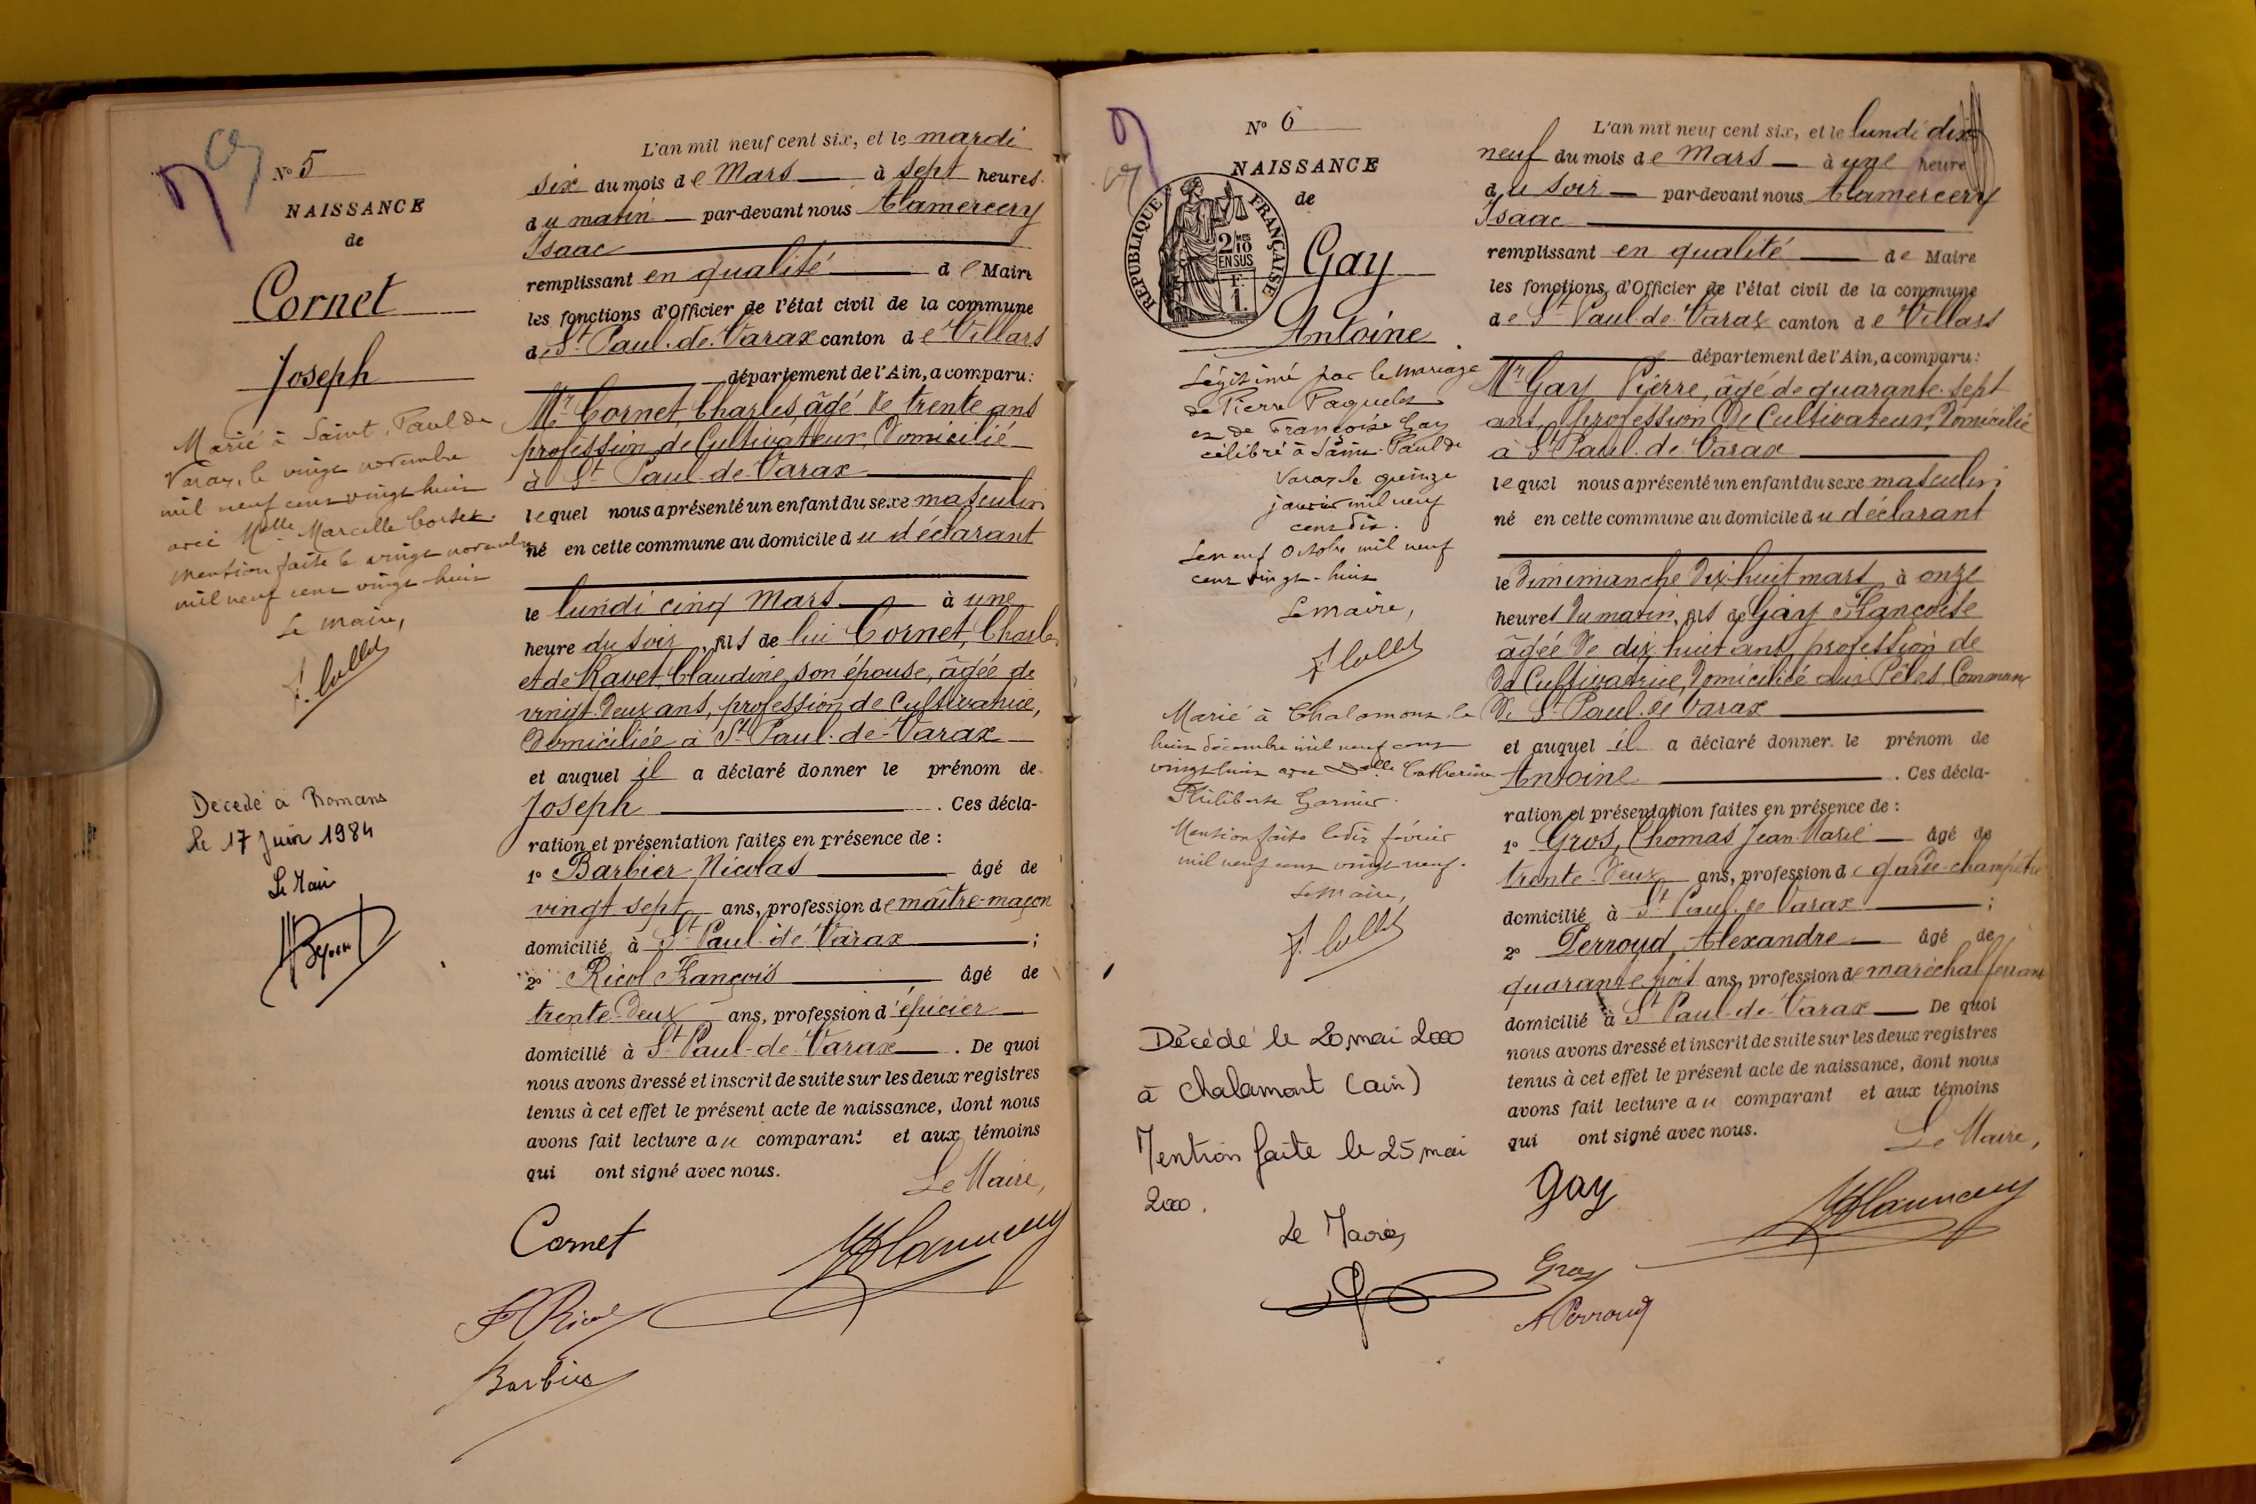 N° 5
NAISSANCE
de
Cornet
Joseph
Marié à Saint Paul de
Varax, le vingt novembre
mil neuf cent vingt huit
avec Melle Marcelle
mention faite le vingt novembre
mil neuf cent vingt-huit
Le maire,
Décédé à Romans
le 17 Juin 1984
Le Maire
L'an mil neuf cent six, et le mardi
six du mois de Mars à sept heures
du matin par-devant nous Alamercery
Isaac
remplissant en qualité de Maire
les fonctions d'Officier de l'état civil de la commune
de St Paul-de-Varax canton de Villars
département de l'Ain, a comparu:
Mr Cornet, Charles, âgé de trente ans
profession de Cultivateur, Domicilié
à St Paul-de-Varax
lequel nous a présenté un enfant du sexe masculin
né en cette commune au domicile du déclarant
le lundi cinq mars à une
heure du soir, fils de lui Cornet, Charles
et de Ravet, Claudine, son épouse, âgée de
vingt-deux ans, profession de Cultivatrice,
Domiciliée à St Paul-de-Varax
et auquel il a déclaré donner le prénom de
Joseph . Ces décla-
ration et présentation faites en présence de :
1° Barbier Nicolas âgé de
vingt sept ans, profession de maître-maçon
domicilié à St Paul-de-Varax ;
2° Ricol François âgé de
trente-deux ans, profession d'épicier
domicilié à St Paul-de-Varax . De quoi
nous avons dressé et inscrit de suite sur les deux registres
tenus à cet effet le présent acte de naissance, dont nous
avons fait lecture au comparant et aux témoins
qui ont signé avec nous.
Le Maire,
Cornet
F Ricol
Barbier
N° 6
NAISSANCE
de
REPUBLIQUE FRANÇAISE
2/10 EN SUS
F. 1
Gay
Antoine
Légitimé par le mariage
de Pierre Paquelet
et de Françoise Gay
célébré à Saint-Paul de
Varax le quinze
janvier mil neuf
cent dix.
Le neuf Octobre mil neuf
cent vingt-huit
Le maire,
Marié à Chalamont le
huit décembre mil neuf cent
vingt huit avec Delle Catherine
Philiberte Garnier.
Mention faite le dix février
mil neuf cent vingt neuf.
Le Maire,
Décédé le 20 mai 2000
à Chalamont (ain)
Mention faite le 25 mai
2000.
Le Maire,
L'an mil neuf cent six, et le lundi dix
neuf du mois de Mars à une heure
du soir par-devant nous Alamercery
Isaac
remplissant en qualité de Maire
les fonctions d'Officier de l'état civil de la commune
de St Paul-de-Varax canton de Villars
département de l'Ain, a comparu:
Mr Gay Pierre, âgé de quarante-sept
ans, profession de Cultivateur, Domicilié
à St Paul-de-Varax
lequel nous a présenté un enfant du sexe masculin
né en cette commune au domicile du déclarant
le dimimanche dix-huit mars à onze
heures du matin, fils de Gay Françoise
âgée de dix huit ans, profession de
de Cultivatrice, Domiciliée aux
de St Paul-de-Varax
et auquel il a déclaré donner le prénom de
Antoine . Ces décla-
ration et présentation faites en présence de :
1° Gros, Thomas Jean Marie âgé de
trente-deux ans, profession de garde-champêtre
domicilié à St Paul-de-Varax ;
2° Perroud, Alexandre âgé de
quarante trois ans, profession de maréchal ferrant
domicilié à St Paul-de-Varax De quoi
nous avons dressé et inscrit de suite sur les deux registres
tenus à cet effet le présent acte de naissance, dont nous
avons fait lecture au comparant et aux témoins
qui ont signé avec nous.
Le Maire,
Gay
Gros
A Perroud